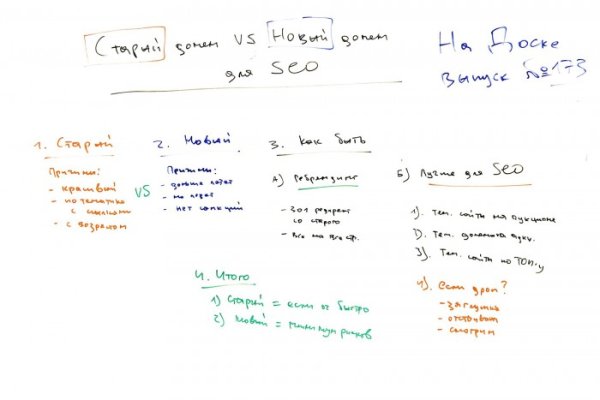 Старый домен VS Новый домен
для SEO
На Доске
выпуск №173
1. Старый
Причины:
- красивый
- по тематике
с ссылками
- с возрастом
VS
2. Новый
Причины:
- дольше
- нет санкций
3. Как быть
А) Ребрендинг
- 301 редирект
со старого
- Все на все стр.
Б) Лучше для SEO
1). Тем. сайты на аукционе
2). Тем. домены аукц.
3). Тем. сайты по ТОП-у
4). Если дроп?
- заглушка
- отстояться
- смотрим
4. Итого
1) Старый = если оч быстро
2) Новый = минимум рисков